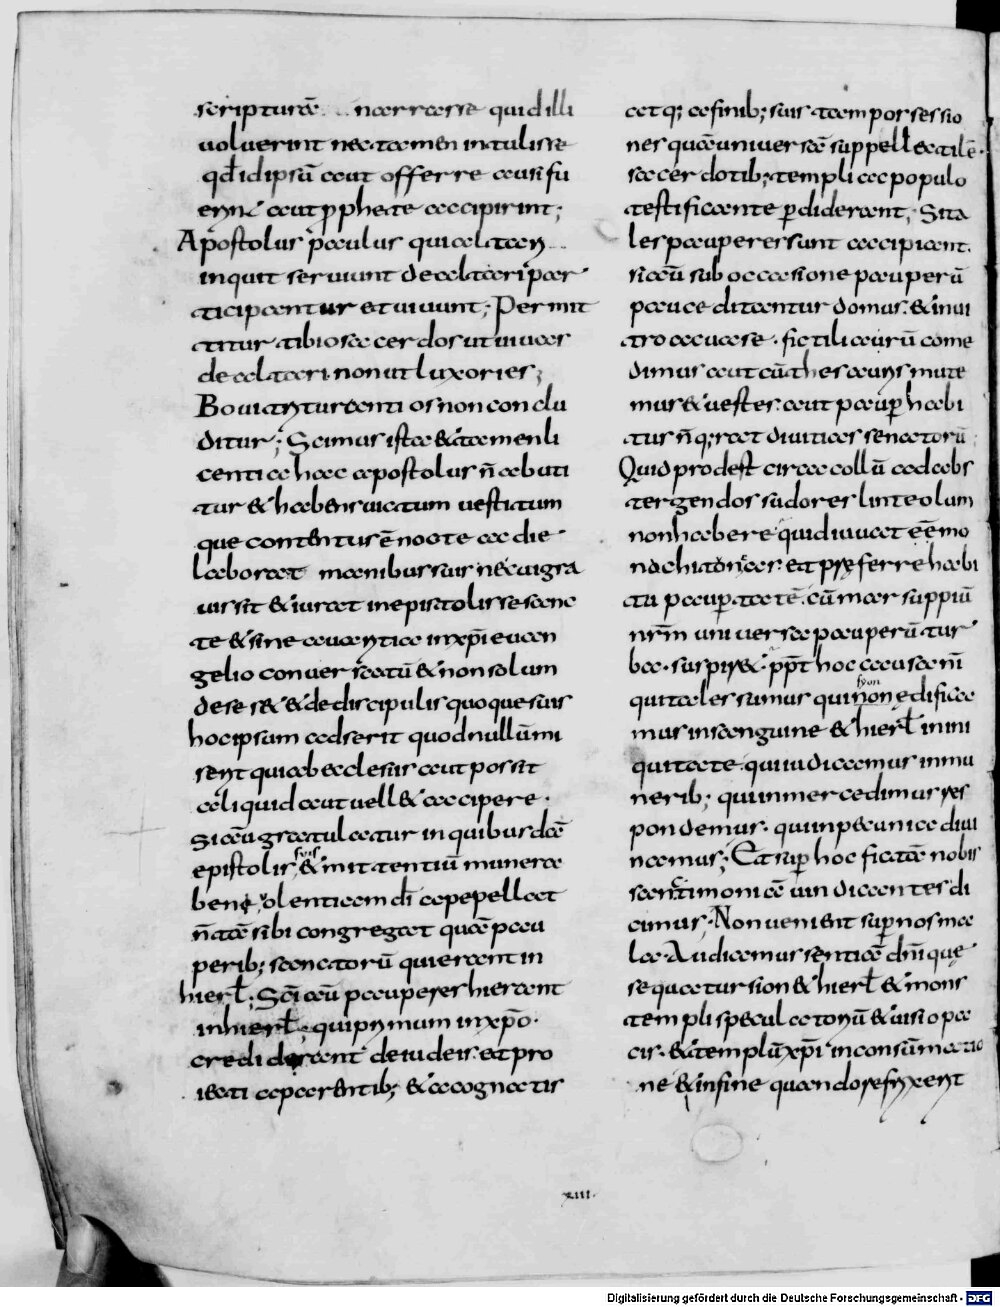 scripturā narrasse quid illi
voluerint nec tamen intulisse
qđ id ipsū aut offerre ausi fu
erint aut prophetę acciperint;
Apostolus paulus qui altari
inquit seruiunt de altari par
ticipantur et uiuunt; Permit
titur tibi o sacerdos ut uiuas
de altari non ut luxories;
Boui trituranti os non conclu
ditur; Scimus ista & tamen li
centia hac apostolus ñ abuti
tur & habens uictum uestitum
que contentus ē nocte ac die
laborat manibus suis ne cui gra
uis sit & iurat in epistolis se sanc
te & sine auaritia in xp̄i euan
gelio conuersatū & non solum
de se s& & de discipulis quoque suis
hoc ipsum adserit quod nullū mi
serit qui ab ecclesiis aut possit
aliquid aut uell& accipere.
Si cū gratulatur in quibusdā
epistolis & mittentiū munera
suis
beneuolentiam dī appellat
ñ tā sibi congregat quā pau
perib; sanctorū qui erant in
hierl; Sci aū pauperes hi erant
in hierl; qui primum in xp̄o
crediderant de iudeis et pro
iecti a parentib; & a cognatis
atq; affinib; suis tam possessio
nes quā uniuersā suppellectilē
sacerdotib; templi ac populo
testificante pdiderant; Si ta
les pauperes sunt accipiant.
Si aū sub occasione pauperū
pauce ditentur domus. & in ui
tro ac uase fictili aurū come
dimus aut cū thesauris mute
mus & uestes. aut paup habi
tus ñ q;rat diuitias senatorū;
Quid prodest circa collū ad abs
tergendos sudores linteolum
non habere quid iuuat ēē mo
nachi tonsas. et pręferre habi
tū paupertatē. cū marsuppiū
nrm uniuersa pauperū tur
ba suspir& ppt hoc ac causā nī
qui tales sumus qui non edifica
syon
mus in sanguine & hierl in ini
quitate. qui iudicamus in mu
nerib; qui in mercede imus res
pondemus. qui in pecunia diui
namus; Et sup hoc fictā nobis
sanctimoniā uindicantes di
cimus. Non uenient sup nos ma
la. Audiamus sentiā dñi que
sequatur sion & hierl & mons
templi speculatoriū & uisio pa
cis. & templū xp̄i in consūmatio
ne & in fine quando refrixerit
xiii.
Digitalisierung gefördert durch die Deutsche Forschungsgemeinschaft - DFG